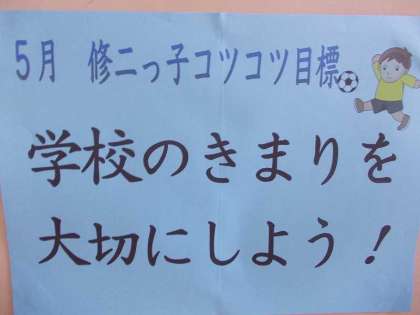 5月 修二っ子コツコツ目標
学校のきまりを
大切にしよう!